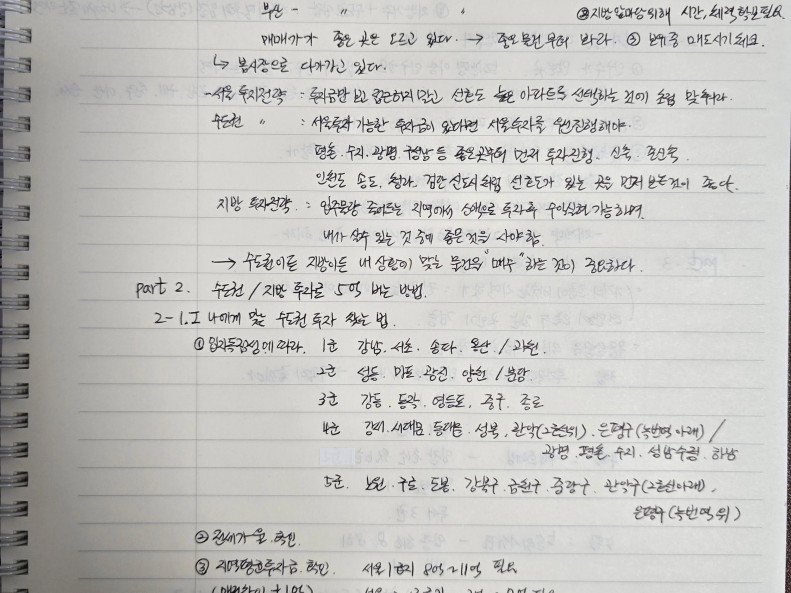 부산 - " "
③ 지방 임마당 위해 시간, 체력 확보 필요.
매매가가 좋은 곳은 오르고 있다. → 좋은 물건 부터 봐라. ⑤ 보유중 매도시기 체크.
↳ 봄시장으로 다가가고 있다.
- 서울 투자전략 : 투자금만 보고 접근하지 말고 선호도 높은 아파트를 선택하는 것에 초점 맞춰라.
수도권 " : 서울투자 가능한 투자금이 있다면 서울투자를 우선진행해야.
평촌. 수지. 광명. 구성남 등 좋은곳부터 먼저 투자진행. 신축. 준신축.
인천도 송도. 청라. 검단 신도시처럼 선호도가 있는 곳을 먼저 보는것이 좋다.
지방 투자전략 : 입주물량 줄어드는 지역에서 소액으로 투자 후 수익실현 가능하며.
내가 살수 있는 것 중에 좋은것을 사야함.
→ 수도권이든 지방이든 내 상황에 맞는 물건을 "매수" 하는 것이 중요하다.
part 2. 수도권 / 지방 투자로 5억 버는 방법.
2-1. I 나에게 맞는 수도권 투자 찾는 법.
① 입지독점성에 따라. 1군 강남. 서초. 송파. 용산 / 과천.
2군 성동. 마포. 광진. 양천 / 분당
3군 강동. 동작. 영등포. 중구. 종로
4군 강서. 서대문. 동대문. 성북. 관악(2호선위). 은평구(녹번역 아래) /
광명. 평촌. 수지. 성남수정. 하남
5군. 노원. 구로. 도봉. 강북구. 금천구. 중랑구. 관악구(2호선아래).
은평구(녹번역 위)
② 전세가율 확인.
③ 지역평균투자금. 확인. 서울 1급지 8억~11억 필요